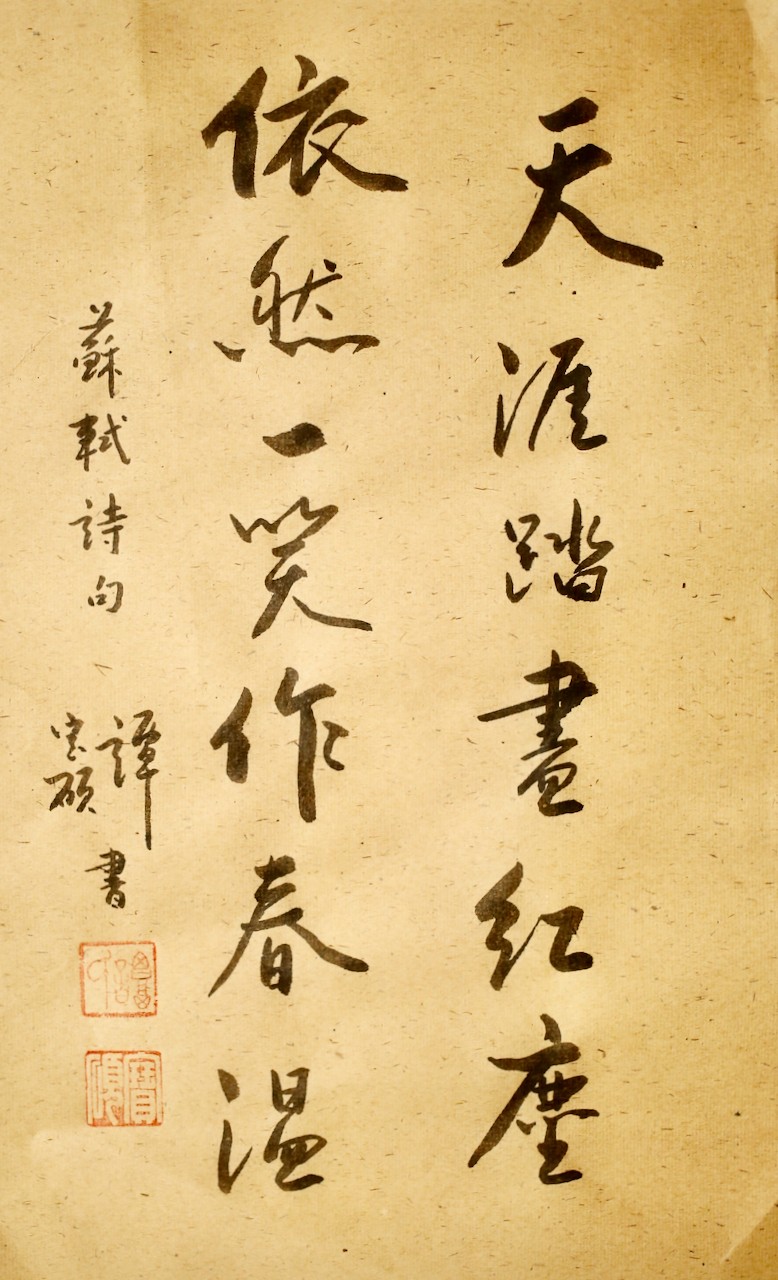 天涯踏盡紅塵
依然一笑作春温
蘇軾詩句
譚宝碩書
寶碩